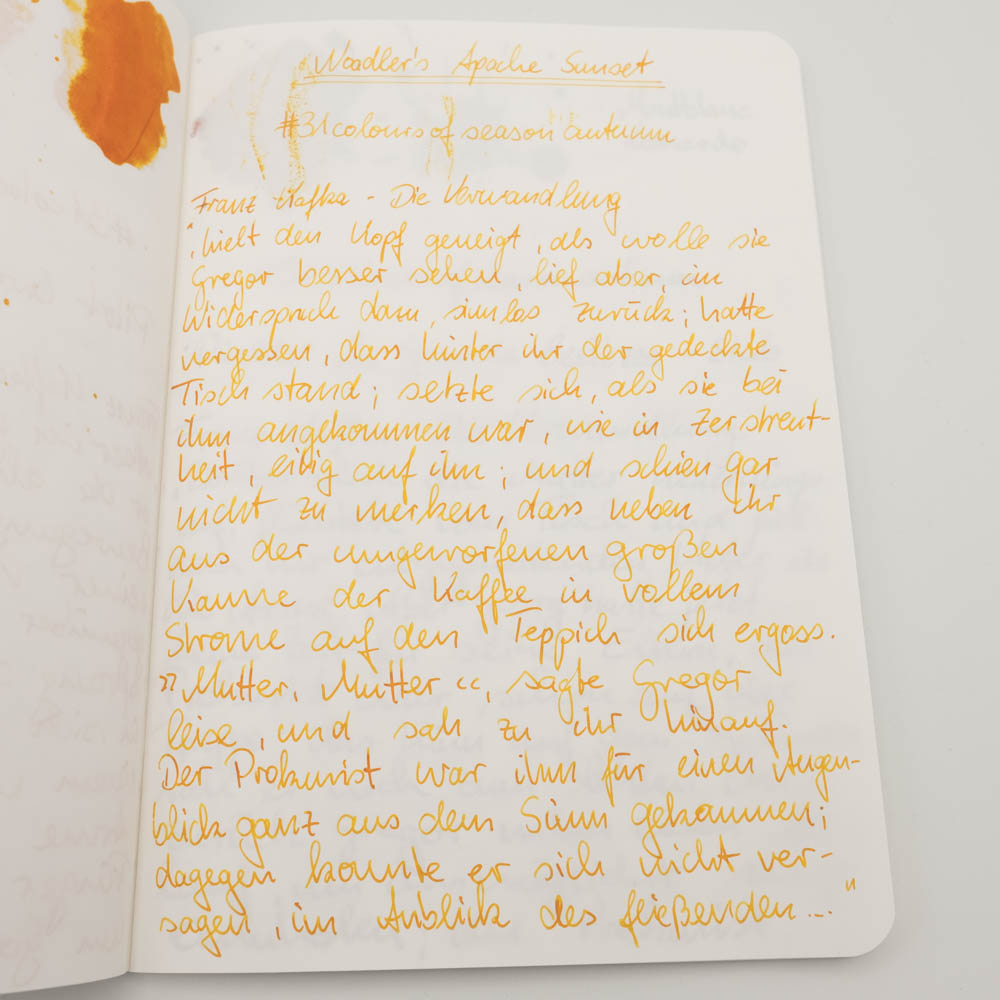 Noodler's Apache Sunset
#31 colours of season autumn
Franz Kafka - Die Verwandlung
", hielt den Kopf geneigt, als wolle sie
Gregor besser sehen, lief aber, im
Widerspruch dazu, sinnlos zurück; hatte
vergessen, dass hinter ihr der gedeckte
Tisch stand; setzte sich, als sie bei
ihm angekommen war, wie in Zerstreut-
heit, eilig auf ihn; und schien gar
nicht zu merken, dass neben ihr
aus der umgeworfenen großen
Kanne der Kaffee in vollem
Strome auf den Teppich sich ergoss.
»Mutter, Mutter«, sagte Gregor
leise, und sah zu ihr hinauf.
Der Prokurist war ihm für einen Augen-
blick ganz aus dem Sinn gekommen;
dagegen konnte er sich nicht ver-
sagen, im Anblick des fließenden ..."